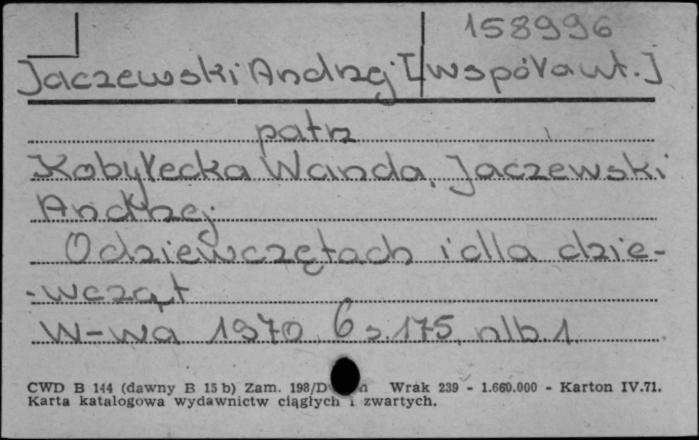 158996
Jaczewski Andrzej [współaut.]
patrz
Kobyłecka Wanda, Jaczewski
Andrzej
O dziewczętach i dla dzie-
-wcząt
W-wa 1970 6 s. 175, nlb. 1.
CWD B 144 (dawny B 15 b) Zam. 198/D Wrak 239 - 1.660.000 - Karton IV.71.
Karta katalogowa wydawnictw ciągłych i zwartych.